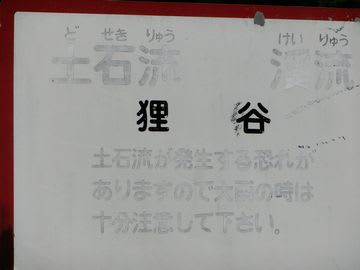 ど せき りゅう けい りゅう
土石流 渓流
狸谷
土石流が発生する恐れが
ありますので大雨の時は
十分注意して下さい。